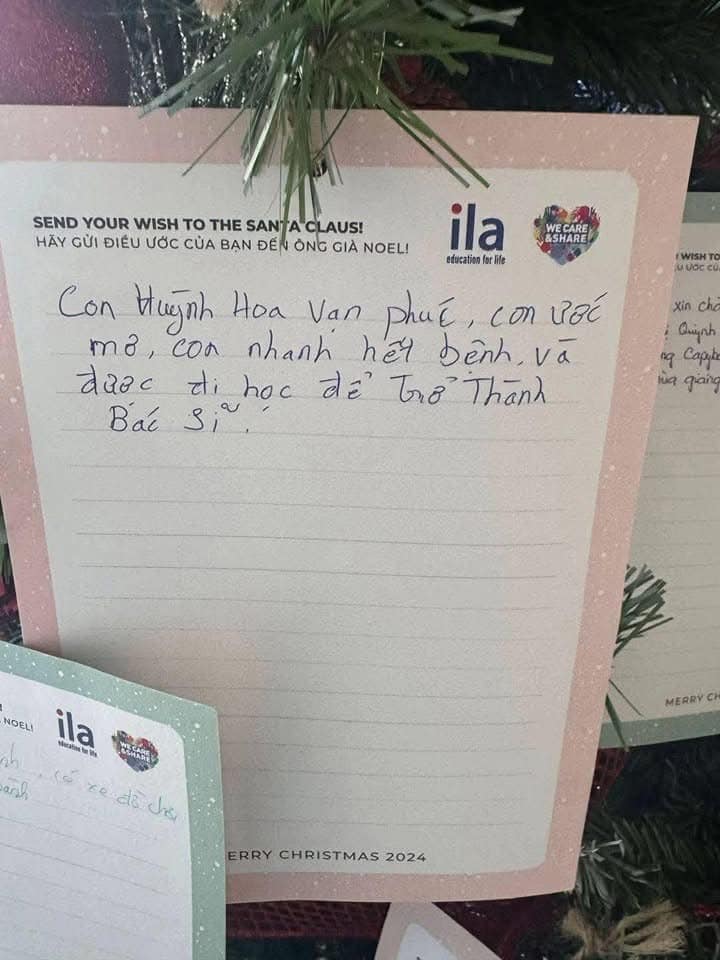 SEND YOUR WISH TO THE SANTA CLAUS!
HÃY GỬI ĐIỀU ƯỚC CỦA BẠN ĐẾN ÔNG GIÀ NOEL!
ila
education for life
WE CARE
&SHARE
Con Huỳnh Hoa Vạn phúc, con ước
mơ, con nhanh hết bệnh, và
được đi học để Trở Thành
Bác Sĩ.
ERRY CHRISTMAS 2024
WISH TO
xin
Quỳnh
MERRY CH
NOEL!
ila
education for life
WE CARE
&SHARE
, có xe đồ chơi